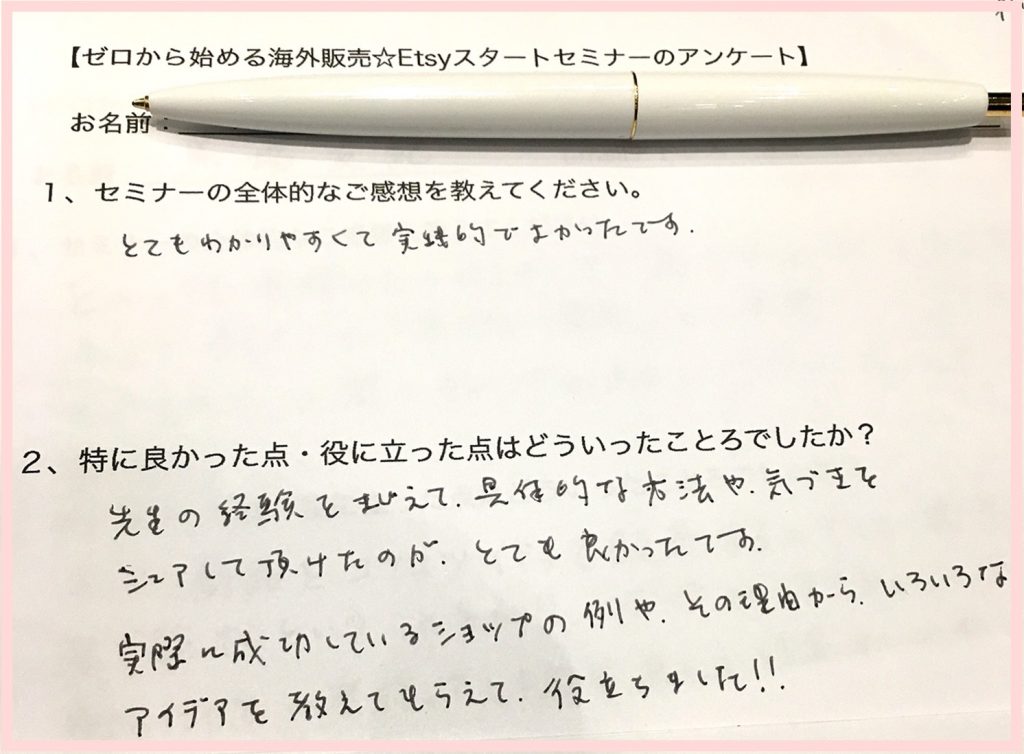 【ゼロから始める海外販売☆Etsyスタートセミナーのアンケート】
お名前:
1、セミナーの全体的なご感想を教えてください。
とてもわかりやすくて実践的でよかったです.
2、特に良かった点・役に立った点はどういったことろでしたか？
先生の経験をまじえて、具体的な方法や、気づきを
シェアして頂けたのが、とても良かったです。
実際に成功しているショップの例や、その理由から、いろいろな
アイデアを教えてもらえて、役立ちました!!